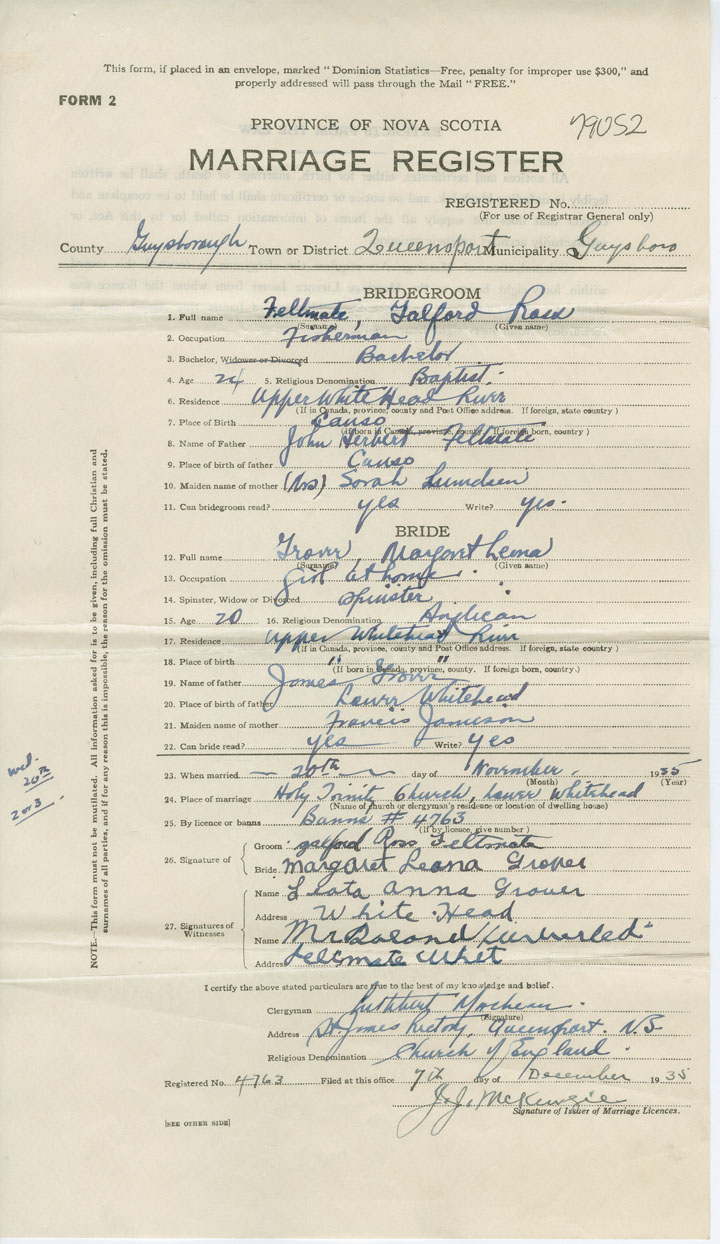 This form, if placed in an envelope, marked "Dominion Statistics—Free, penalty for improper use $300," and
properly addressed will pass through the Mail "FREE."
FORM 2
PROVINCE OF NOVA SCOTIA
79052
MARRIAGE REGISTER
REGISTERED No.
(For use of Registrar General only)
County Guysborough Town or District Queensport Municipality Guysboro
BRIDEGROOM
1. Full name Feltmate, Galford Ross
(Surname) (Given name)
2. Occupation Fisherman
3. Bachelor, Widower or Divorced Bachelor
4. Age 24 5. Religious Denomination Baptist.
6. Residence Upper White Head River
(If in Canada, province, county and Post Office address. If foreign, state country)
7. Place of Birth Canso
(If born in Canada, province, county. If foreign born, country)
8. Name of Father John Herbert Feltmate
9. Place of birth of father Canso
10. Maiden name of mother (Mrs) Sarah Lumdsen
11. Can bridegroom read? yes Write? yes.
BRIDE
12. Full name Grover, Margaret Leona
(Surname) (Given name)
13. Occupation girl at home.
14. Spinster, Widow or Divorced Spinster
15. Age 20 16. Religious Denomination Anglican
17. Residence Upper Whitehead River
(If in Canada, province, county and Post Office address. If foreign, state country)
18. Place of birth " "
(If born in Canada, province, county. If foreign born, country.)
19. Name of father James Grover
20. Place of birth of father Lower Whitehead
21. Maiden name of mother Francis Jameson
22. Can bride read? yes Write? yes
23. When married 20th day of November. 1935
(Month) (Year)
24. Place of marriage Holy Trinity Church, Lower Whitehead
(Name of church or clergyman's residence or location of dwelling house)
25. By licence or banns Banns # 4763
(If by licence, give number)
26. Signature of
Groom Galford Ross Feltmate
Bride Margaret Leona Grover
27. Signatures of Witnesses
Name Leata Anna Grover
Address White Head
Name Mr
Address Feltmate Whit
I certify the above stated particulars are true to the best of my knowledge and belief.
Clergyman Cuthbert
(Signature)
Address St. James Rectory, Queensport. N.S
Religious Denomination Church of England.
Registered No. 4763 Filed at this office 7th day of December 1935
J. J. McKenzie
Signature of Issuer of Marriage Licences.
[SEE OTHER SIDE]
NOTE.—This form must not be mutilated. All information asked for is to be given, including full Christian and
surnames of all parties, and if for any reason this is impossible, the reason for the omission must be stated.
wed.
20th
2 or 3.